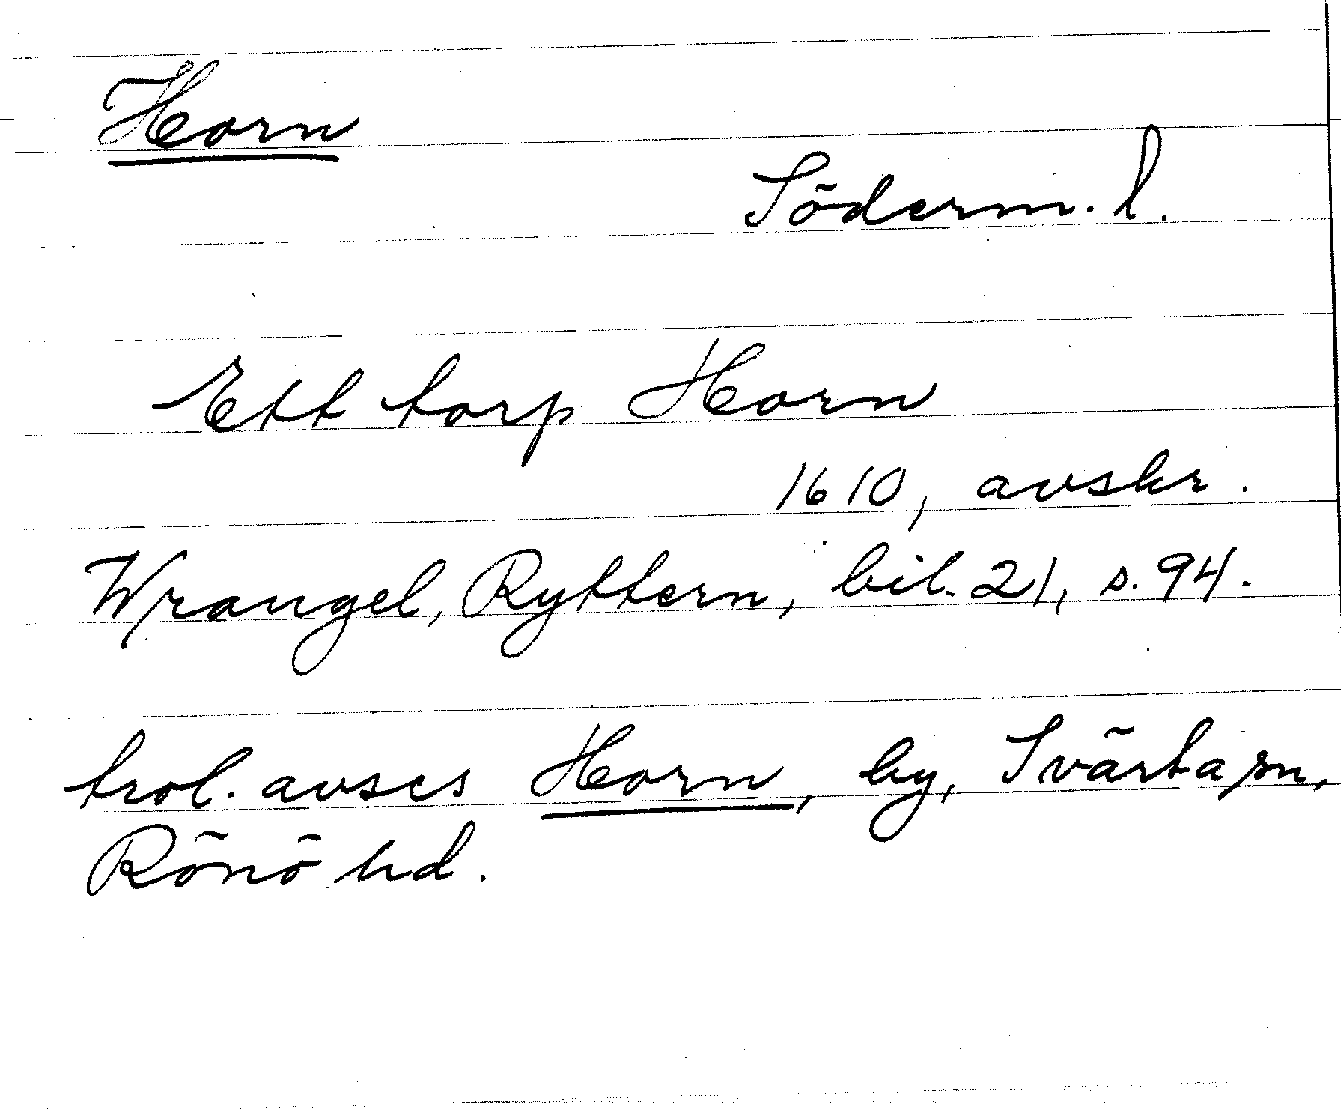 Horn
Söderm. l.
Ett torp Horn
1610, avskr.
Wrangel, Ryttern, bil. 21, s. 94.
trol. avses Horn, by, Svärta sn,
Rönö hd.